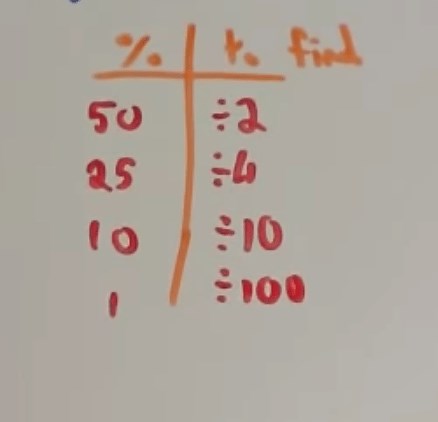 % to find
50 ÷2
25 ÷4
10 ÷10
1 ÷100